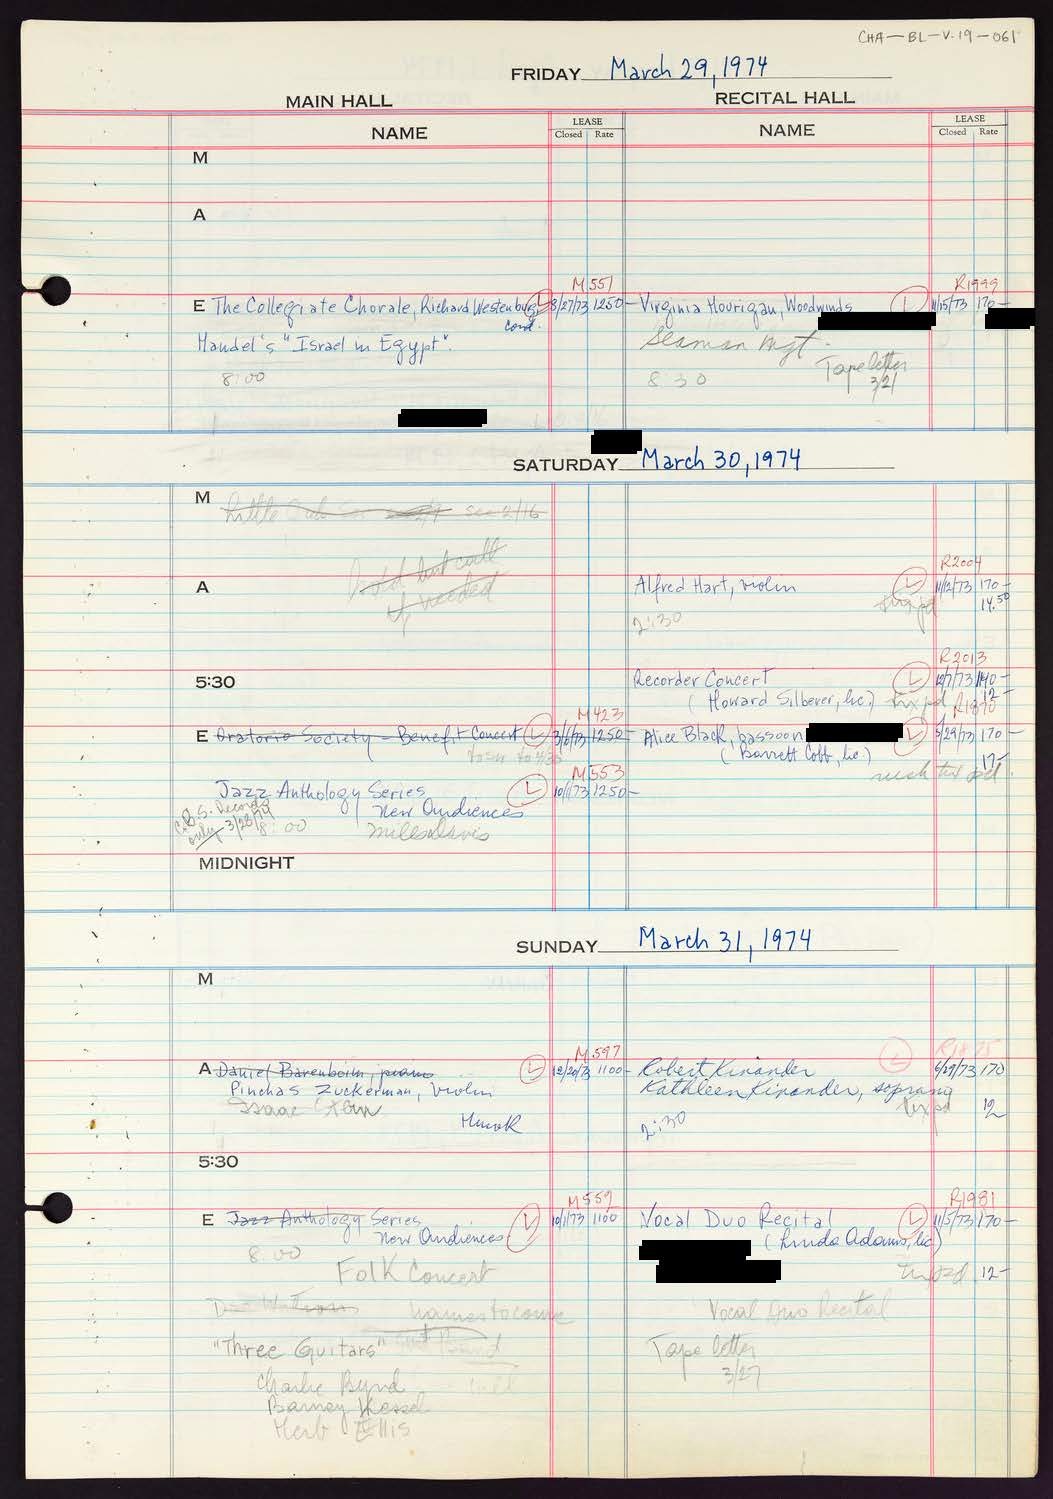 CHA-BL-V.19-061
FRIDAY March 29, 1974
MAIN HALL
RECITAL HALL
NAME
LEASE
Closed Rate
NAME
LEASE
Closed Rate
M
A
M 551
R1999
E The Collegiate Chorale, Richard Westenburg, cond. L 8/27/73 1250-
Virginia Hourigan, Woodwinds L 11/15/73 170-
Handel's "Israel in Egypt".
Seaman Mgt.
8:00
8 30
Tape letter
3/21
SATURDAY March 30, 1974
M
see 2/16
Hold but call
if needed
R2004
A
Alfred Hart, violin L 11/12/73 170-
14.50
2:30
R2013
5:30
Recorder Concert L 12/7/73 140-
(Howard Silberer, lic.) tix pd 12-
M 423
R1870
E Oratorio Society - Benefit Concert L 3/6/73 1250-
Alice Black, bassoon L 5/29/73 170-
(Barrett Cobb, lic.)
17-
tix pd.
M 553
Jazz Anthology Series L 10/1/73 1250-
New Audiences
C.B.S. Records
only 3/28/74
8:00
Miles Davis
MIDNIGHT
SUNDAY March 31, 1974
M
M 597
R1875
A Daniel Barenboim, piano L 12/20/73 1100-
Robert Kinander L 6/29/73 170
Pinchas Zuckerman, violin
Kathleen Kinander, soprano
Isaac Stern
tix pd 12
Hurok
2:30
5:30
M 559
R1981
E Jazz Anthology Series L 10/1/73 1100
New Audiences
Vocal Duo Recital L 11/5/73 170-
(Linda Adams, lic)
8:00
tix pd. 12-
Folk Concert
names to come
Vocal Duo Recital
"Three Guitars"
Tape letter
3/27
Charlie Byrd
Barney Kessel
Herb Ellis